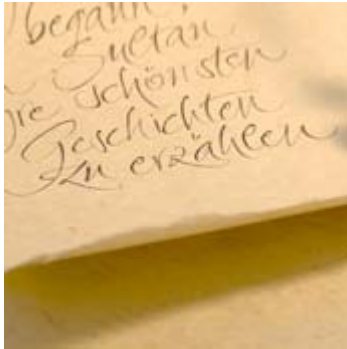 begann,
Sultan
schönsten
Geschichten
zu erzählen